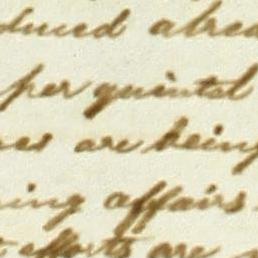 duced alrea
per quintal
es are being
ing affairs
efforts are